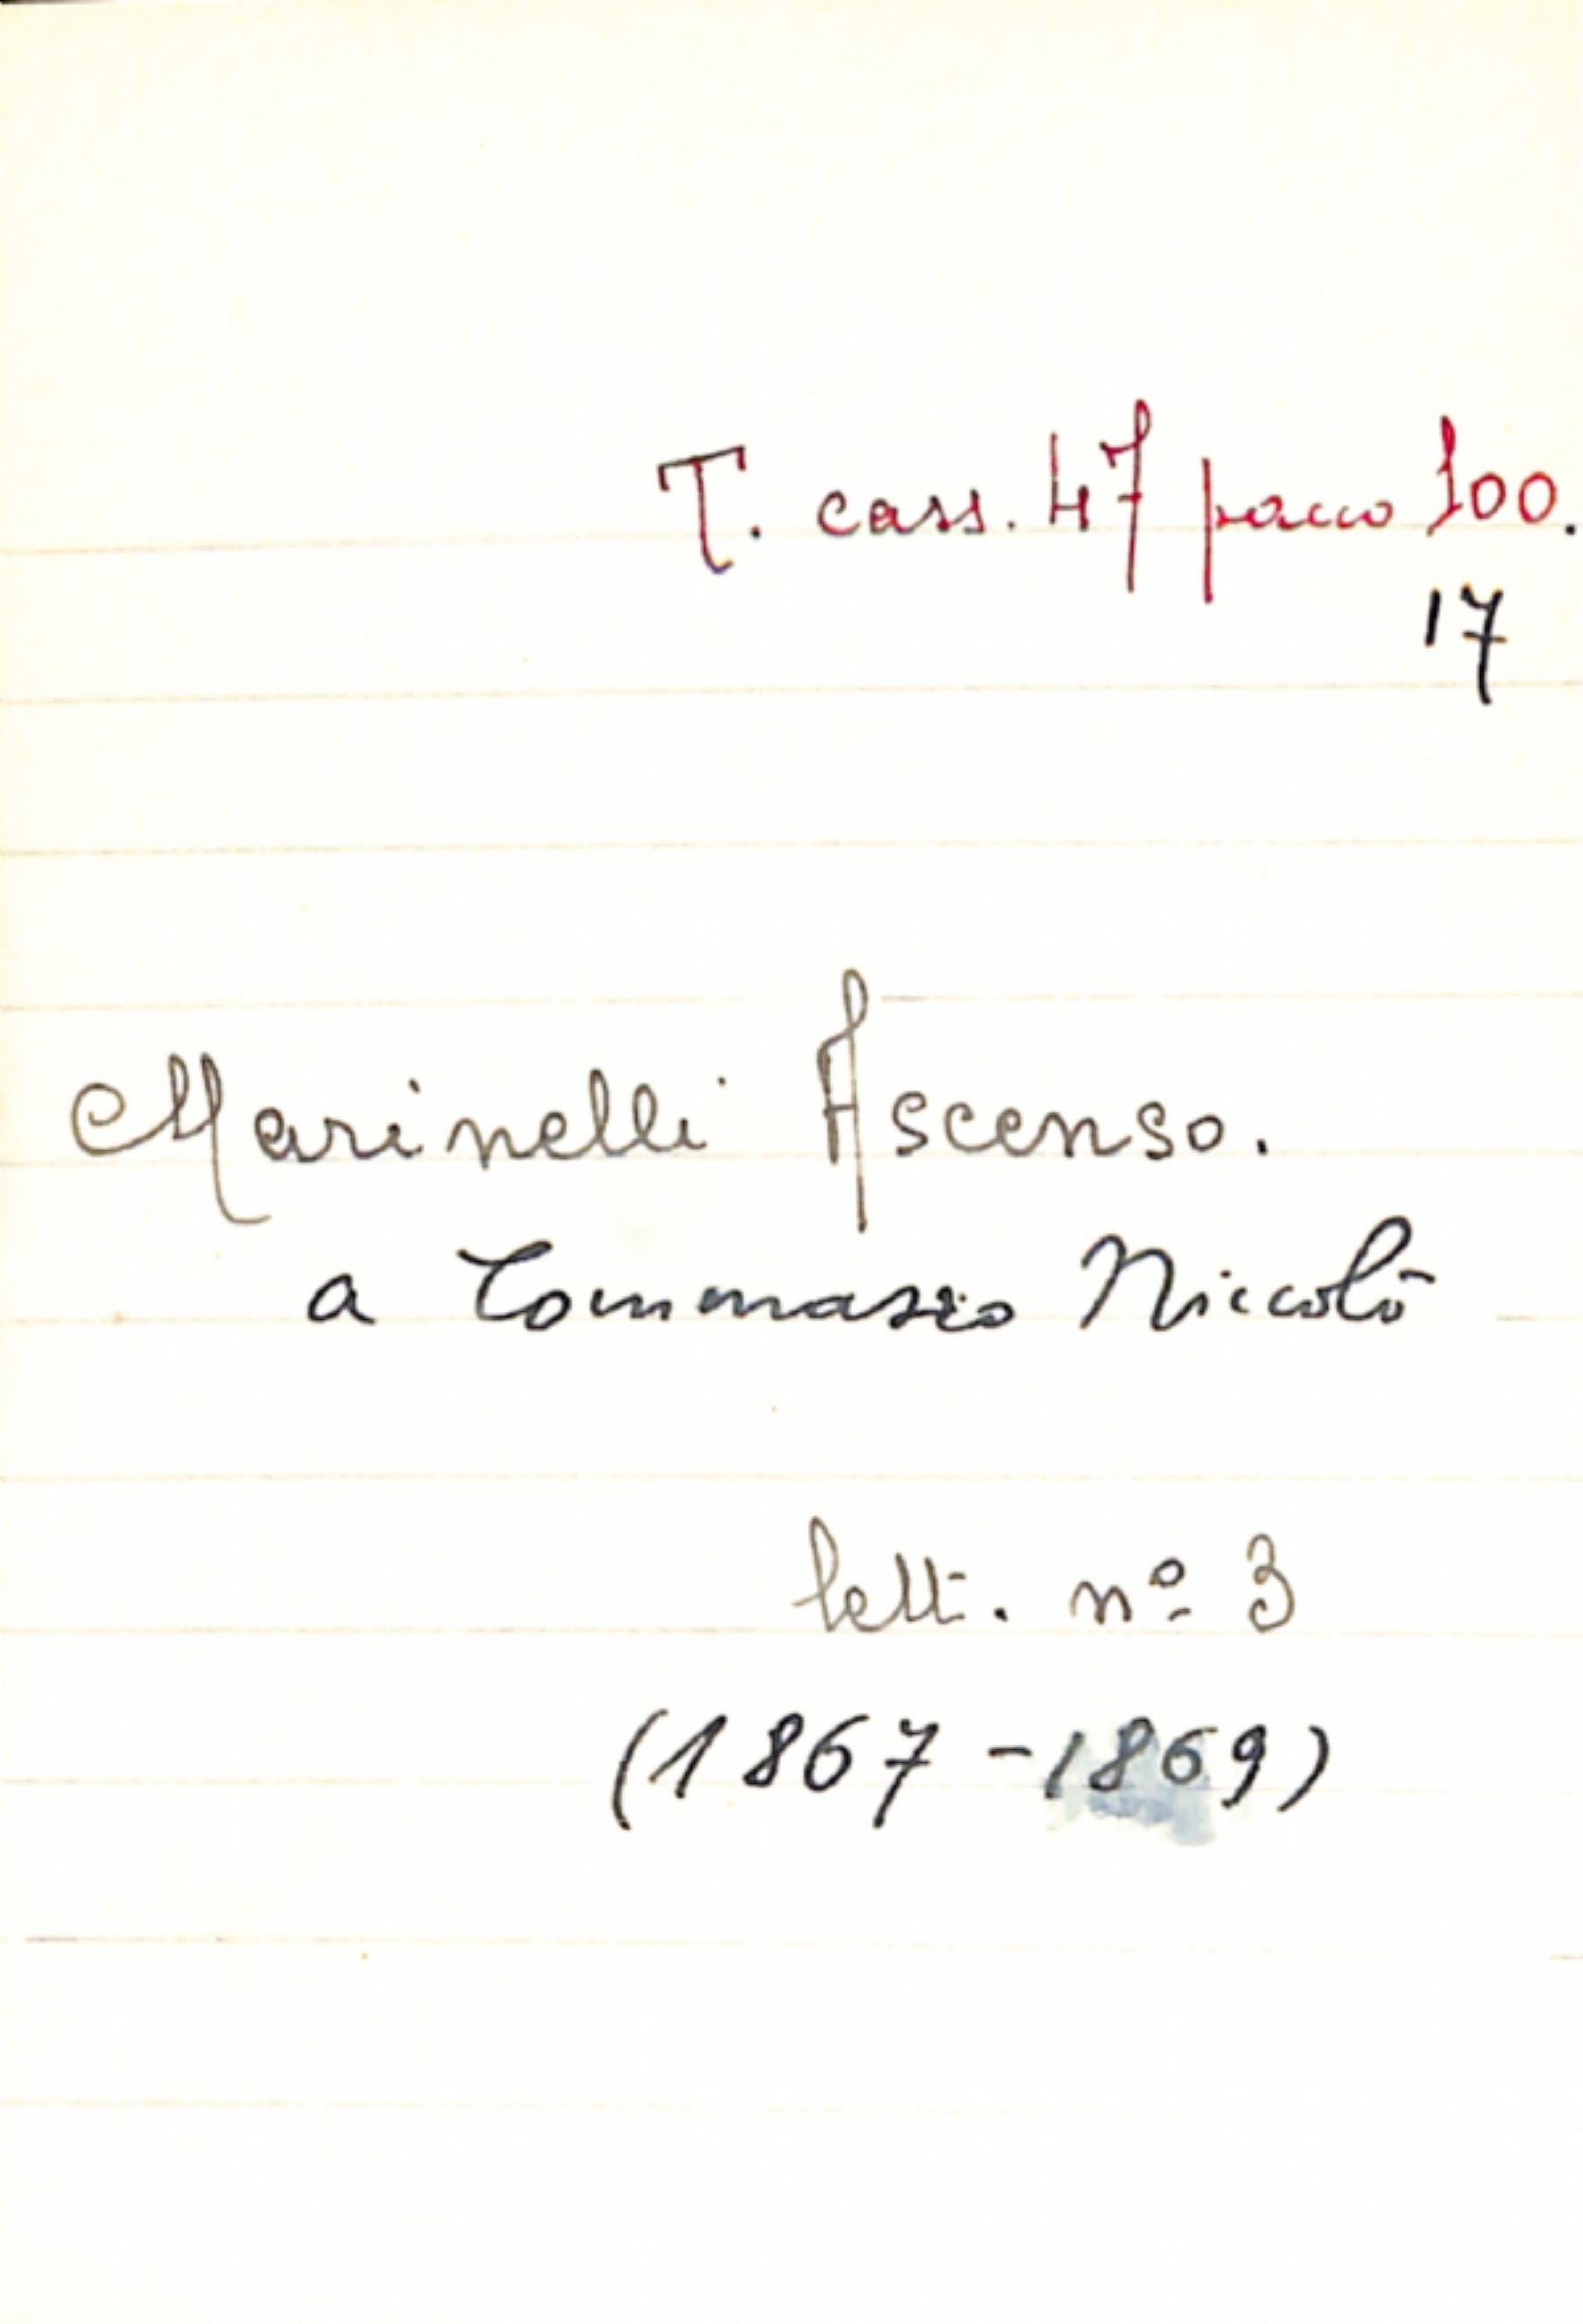 T. cass. 47 pacco 100.
17
Marinelli Ascenso.
a Tommaseo Niccolò
lett. nº 3
(1867-1869)